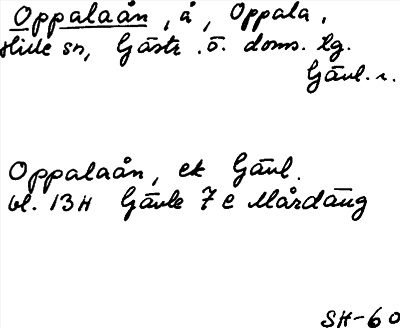 Oppalaån, å, Oppala,
Hille sn, Gästr. ö. doms. tg.
Gävl. l.
Oppalaån, ek Gävl.
bl. 13H Gävle 7 e Mårdäng
SH-60